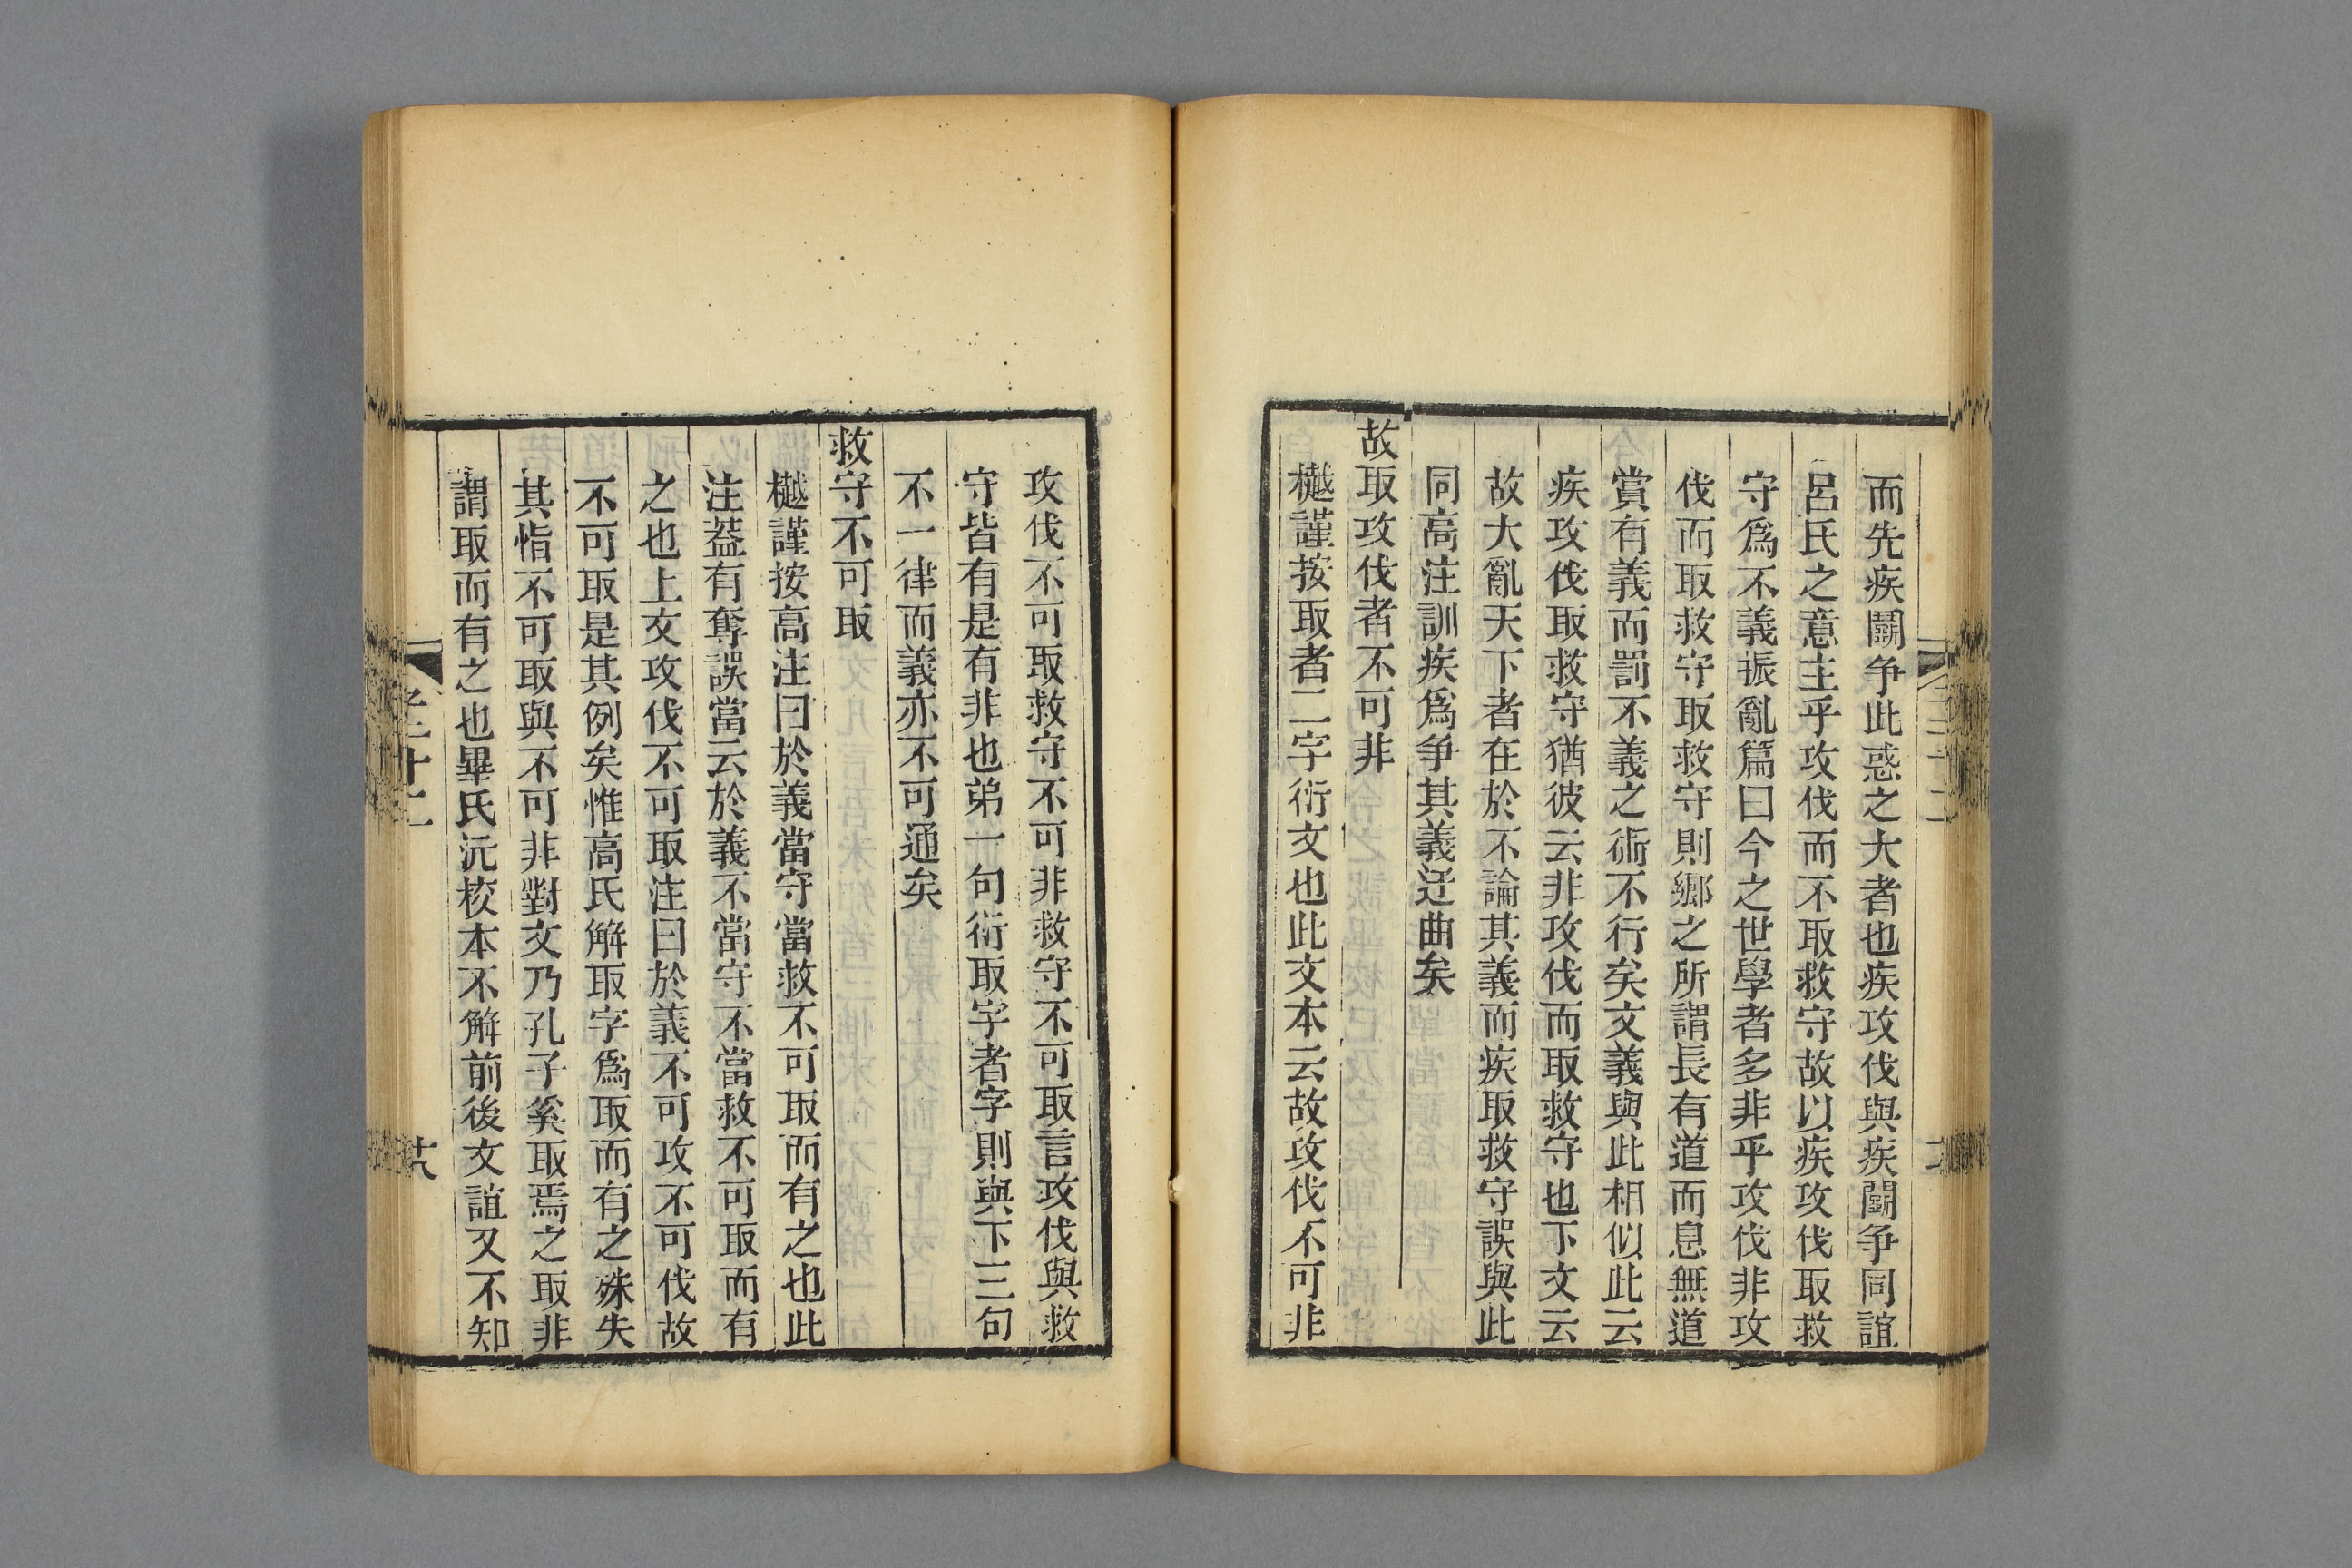 而先疾鬭争此惑之大者也疾攻伐與疾鬭争同誼
呂氏之意主乎攻伐而不取救守故以疾攻伐取救
守爲不義振亂篇曰今之世學者多非乎攻伐非攻
伐而取救守取救守則鄉之所謂長有道而息無道
賞有義而罰不義之術不行矣文義與此相似此云
疾攻伐取救守猶彼云非攻伐而取救守也下文云
故大亂天下者在於不論其義而疾取救守誤與此
同高注訓疾爲争其義迂曲矣
故取攻伐者不可非
樾謹按取者二字衍文也此文本云故攻伐不可非
攻伐不可取救守不可非救守不可取言攻伐與救
守皆有是有非也弟一句衍取字者字則與下三句
不一律而義亦不可通矣
救守不可取
樾謹按高注曰於義當守當救不可取而有之也此
注蓋有奪誤當云於義不當守不當救不可取而有
之也上文攻伐不可取注曰於義不可攻不可伐故
不可取是其例矣惟高氏解取字爲取而有之殊失
其恉不可取與不可非對文乃孔子奚取焉之取非
謂取而有之也畢氏沅校本不解前後文誼又不知
十二